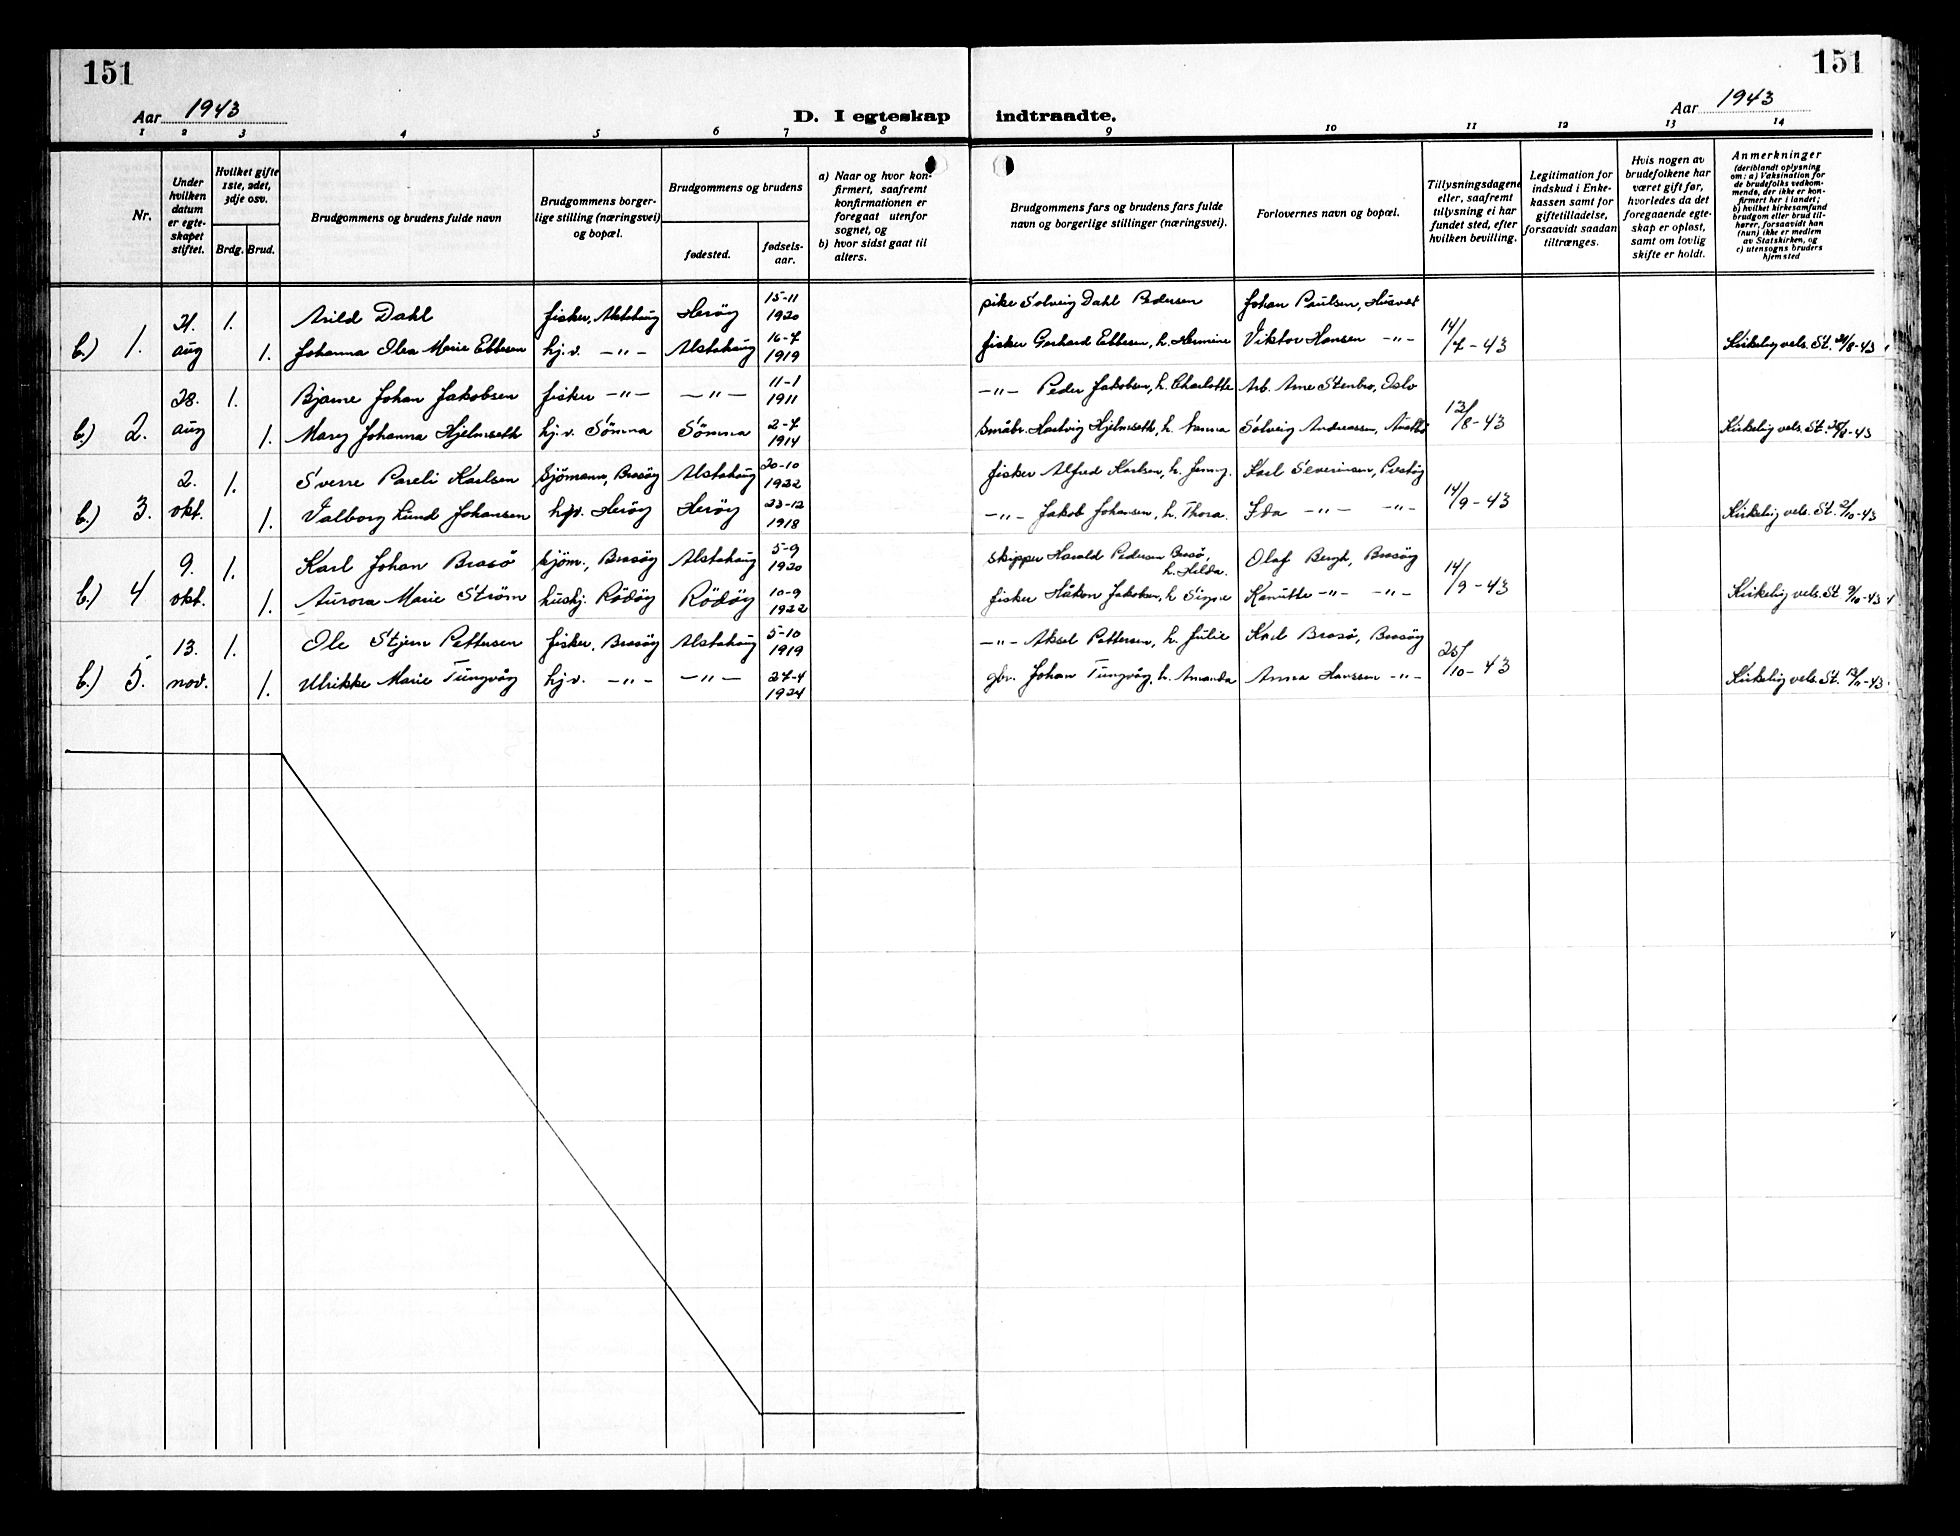 151
151
Aar 1943
D. I egteskap
indtraadte.
Aar 1943
1 2 3 4 5 6 7 8 9 10 11 12 13 14
Nr.
Under
hvilken
datum
er egte-
skapet
stiftet.
Hvilket gifte
1ste, 2det,
3dje osv.
Brdg. Brud.
Brudgommens og brudens fulde navn
Brudgommens borger-
lige stilling (næringsvei)
og bopæl.
Brudgommens og brudens
fødested.
fødsels-
aar.
a) Naar og hvor kon-
firmert, saafremt
konfirmationen er
foregaat utenfor
sognet, og
b) hvor sidst gaat til
alters.
Brudgommens fars og brudens fars fulde
navn og borgerlige stillinger (næringsvei).
Forlovernes navn og bopæl.
Tillysningsdagene
eller, saafremt
tillysning ei har
fundet sted, efter
hvilken bevilling.
Legitimation for
indskud i Enke-
kassen samt for
giftetilladelse,
forsaavidt saadan
tiltrænges.
Hvis nogen av
brudefolkene har
været gift før,
hvorledes da det
foregaaende egte-
skap er opløst,
samt om lovlig
skifte er holdt.
Anmerkninger
(deriblandt oplysning
om: a) Vaksination for
de brudefolks vedkom-
mende, der ikke er kon-
firmert her i landet;
b) hvilket kirkesamfund
brudgom eller brud til-
hører, forsaavidt han
(hun) ikke er medlem
av Statskirken, og
c) utensogns bruders
hjemsted
21. 1. Arild Dahl fisker, Alstahaug Herøy 15-11 1920 pike Solveig Dahl Pedersen Johan Paulsen, Husvær
b.) 1. aug 1. Johanna Olea Marie Ebbesen hj.v. -"- Alstahaug 16-7 1919 fisker Gerhard Ebbesen, h. Hermine Viktor Hansen -"- 14/7-43 Kirkelig vels. St. 21/8-43
28. 1. Bjarne Johan Jakobsen fisker -"- -"- 11-1 1911 -"- Peder Jakobsen, h. Charlotte Arb. Arne Stenbro, Oslo
b.) 2. aug 1. Mary Johanna Hjelmseth hj.v. Sömna Sömna 2-7 1914 Småbr. Hartvig Hjelmseth, h. Nanna Solveig Andreassen, 12/8-43 Kirkelig vels. St. 28/8-43
2. 1. Sverre Pareli Karlsen Sjömann, Brasöy Alstahaug 20-10 1922 fisker Alfred Karlsen, h. Jenny. Karl Severinsen,
b.) 3. okt. 1. Valborg Lund Johansen hjv. Herøy Herøy 23-12 1918 -"- Jakob Johansen, h. Thora. Ida -"- -"- 14/9-43 Kirkelig vels. St. 2/10-43
9. 1. Karl Johan Brasö Sjöm., Brasöy Alstahaug 5-9 1920 skipper Harald Pedersen Brasö, h. Hilda. Olaf Bergh, Brasöy
b.) 4 okt. 1. Aurora Marie Ström hushj. Rödöy Rödöy 10-9 1922 fisker Håkon Jakobsen, h. Signe Kanutte -"- -"- 14/9-43 Kirkelig vels. St. 9/10-43
13. 1. Ole Stjern Pettersen fisker, Brasöy Alstahaug 5-10 1919 -"- Aksel Pettersen, h. Julie Karl Brasö, Brasöy
b.) 5. nov. 1. Ulrikke Marie Tungvåg hj.v. -"- -"- 27-4 1924 gbr. Johan Tungvåg, h. Amanda Anna Hanssen -"- 25/10-43 Kirkelig vels. St. 13/11-43